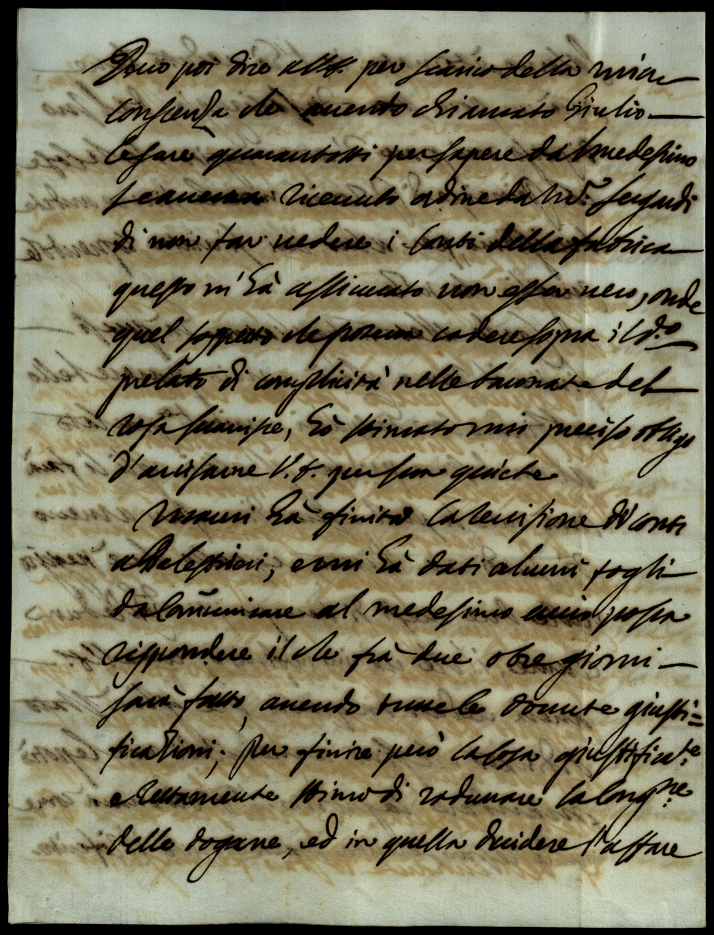 Devo poi dire a V.E. per scarico della mia
conscienza che avendo chiamato Giulio
Cesare quarantotti per sapere dal medesimo
se aveva ricevuto ordine da Mr. Sergardi
di non far vedere i Conti della fabrica
questo m'hà assicurato non esser vero, onde
quel sospetto che poteva cadere sopra il do.
prelato di complicità nelle baronate del
hò stimato mio preciso obligo
d'avisarne V.E. per sua quiete
hà finita la revisione de' conti
a Pelestrieri, e mi hà dati alcuni fogli
da comunicare al medesimo acciò possa
rispondere il che frà due o tre giorni
sarà fatto, avendo tutte le dovute giusti=
ficazioni; Per finire però la cosa giustificate.
e rettamente stimo di radunare la Congne.
delle dogane, ed in quella decidere l'affare